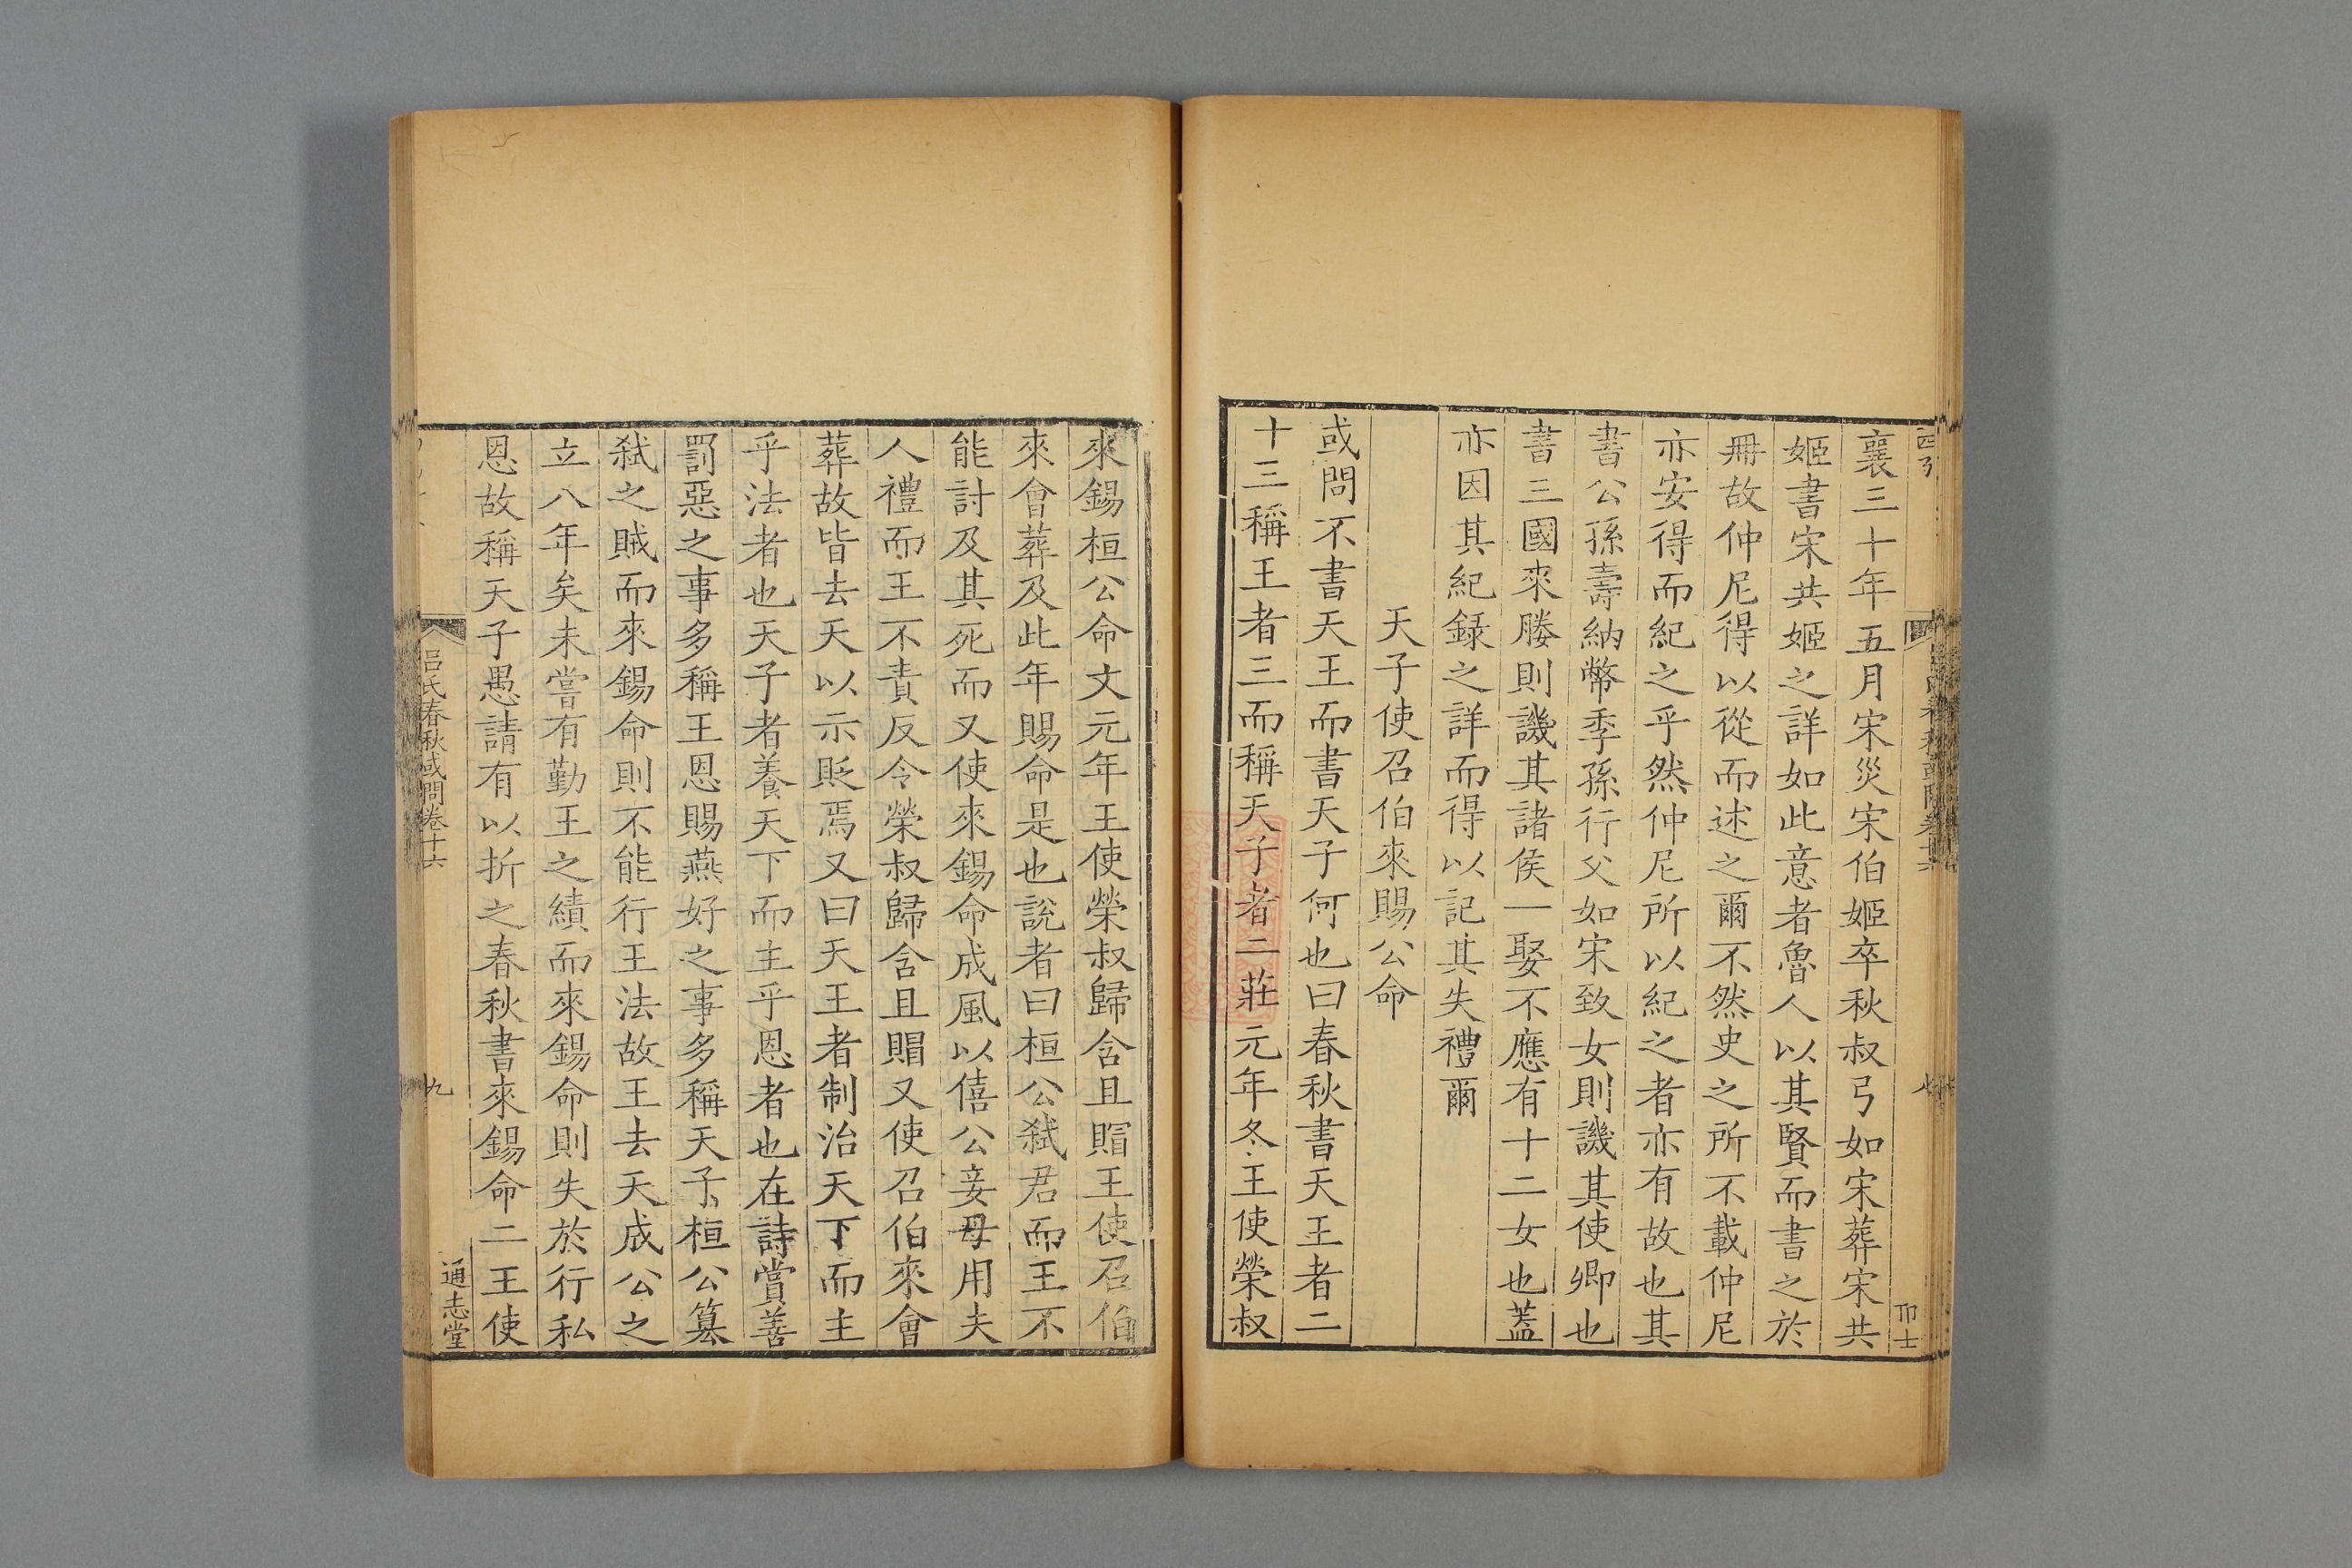 襄三十年五月宋災宋伯姬卒秋叔弓如宋葬宋共
姬書宋共姬之詳如此意者魯人以其賢而書之於
冊故仲尼得以從而述之爾不然史之所不載仲尼
亦安得而紀之乎然仲尼所以紀之者亦有故也其
書公孫壽納幣季孫行父如宋致女則譏其使卿也
書三國來媵則譏其諸侯一娶不應有十二女也蓋
亦因其紀録之詳而得以記其失禮爾
天子使召伯來賜公命
或問不書天王而書天子何也曰春秋書天王者二
十三稱王者三而稱天子者二莊元年冬王使榮叔
來錫桓公命文元年王使榮叔歸含且賵王使召伯
來會葬及此年賜命是也說者曰桓公弑君而王不
能討及其死而又使來錫命成風以僖公妾母用夫
人禮而王不責反令榮叔歸含且賵又使召伯來會
葬故皆去天以示貶焉又曰天王者制治天下而主
乎法者也天子者養天下而主乎恩者也在詩賞善
罰惡之事多稱王恩賜燕好之事多稱天子桓公篡
弑之賊而來錫命則不能行王法故王去天成公之
立八年矣未嘗有勤王之績而來錫命則失於行私
恩故稱天子愚請有以折之春秋書來錫命二王使
呂氏春秋或問卷十六
九
通志堂